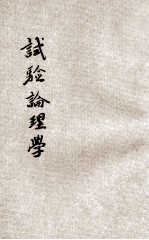 試驗論理學